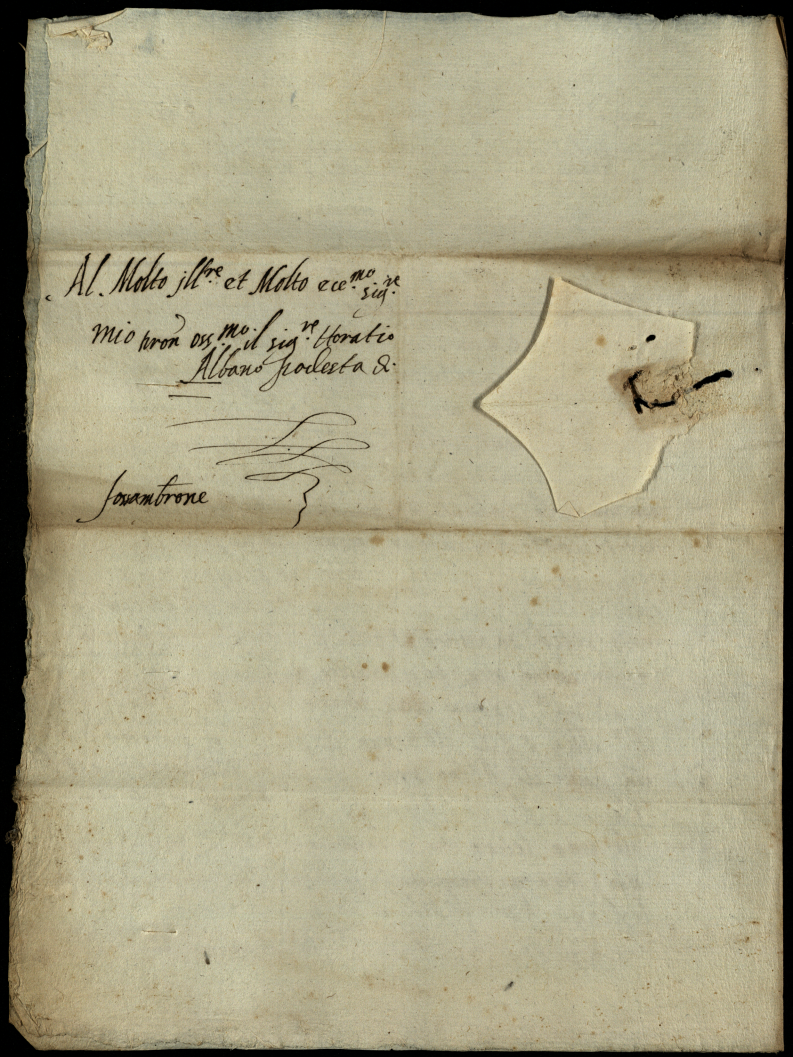 Al Molto Ill.re et Molto ecc.mo sig.re
mio pron oss.mo il sig.re Horatio
Albano podesta &.
fossambrone